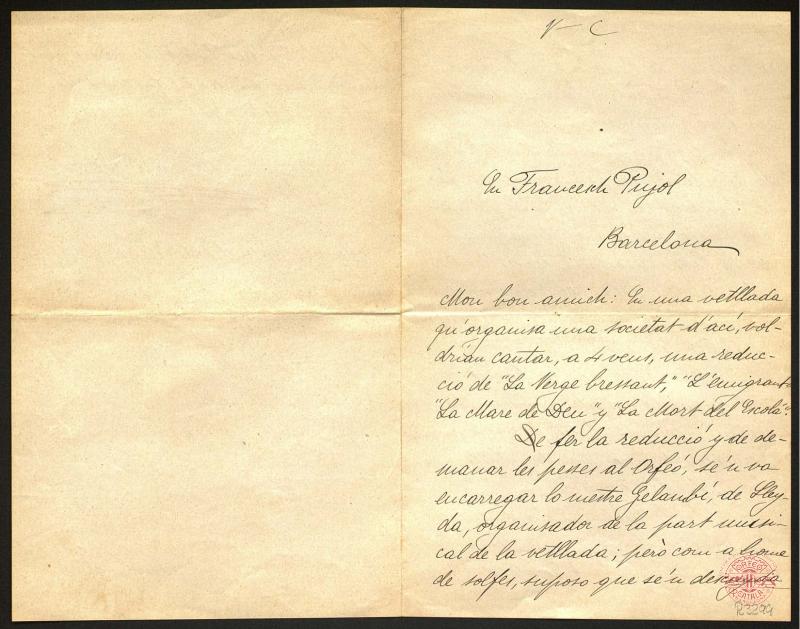 V – C
En Francesch Pujol
Barcelona
Mon bon amich: En una vetllada
qu'organisa una societat d'ací, vol-
drían cantar, a 4 veus, una reduc-
ció de "La Verge bressant," "L'emigrant"
"La Mare de Deu" y "La Mort del Escolá".
De fer la reducció y de de-
manar les pesses al Orfeó, se'n va
encarregar lo mestre Gelambí, de Lley-
da, organisador de la part mussi-
cal de la vetllada; però com a home
de solfes, suposo que se'n descuyda
ORFEÓ
CATALÀ
R3299